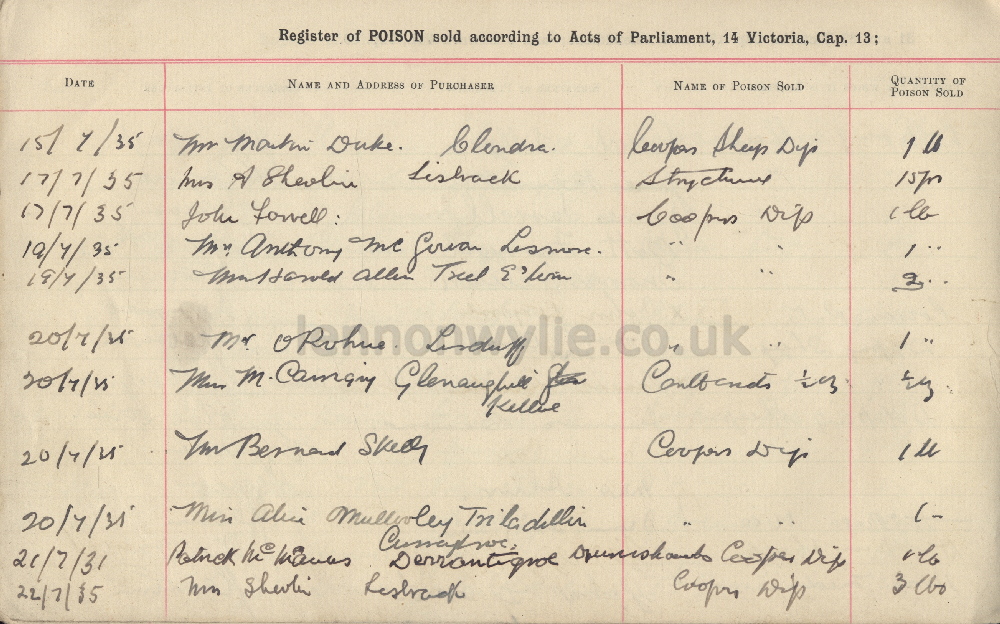 Register of POISON sold according to Acts of Parliament, 14 Victoria, Cap. 13;
DATE NAME AND ADDRESS OF PURCHASER NAME OF POISON SOLD QUANTITY OF POISON SOLD
15/7/35 Mr Martin Duke. Clendra. Coopers Sheep Dip 1 lb
17/7/35 Mrs A Shevlin Lisbrack Strychnine
17/7/35 John Farrell: Coopers Dip 1 lb
19/7/35 Mr. Anthony Mc Gowan Lesmore. " " 1 "
19/7/35 Harold Allen " " 2 "
lennonwylie.co.uk
20/7/35 Mr. O Rohne. Lisduff " " 1 "
20/7/35 Miss M. Glenaughill ½ oz ½ oz
Killie
20/7/35 Mr Bernard Skelly Coopers Dip 1 lb
20/7/35 Miss Alice Mullooley " " 1 "
21/7/31 Patrick McManus Derrintigroe Drumshambo Coopers Dip 1 lb
22/7/35 Mrs Shevlin Lisbrack Coopers Dip 3 lbs